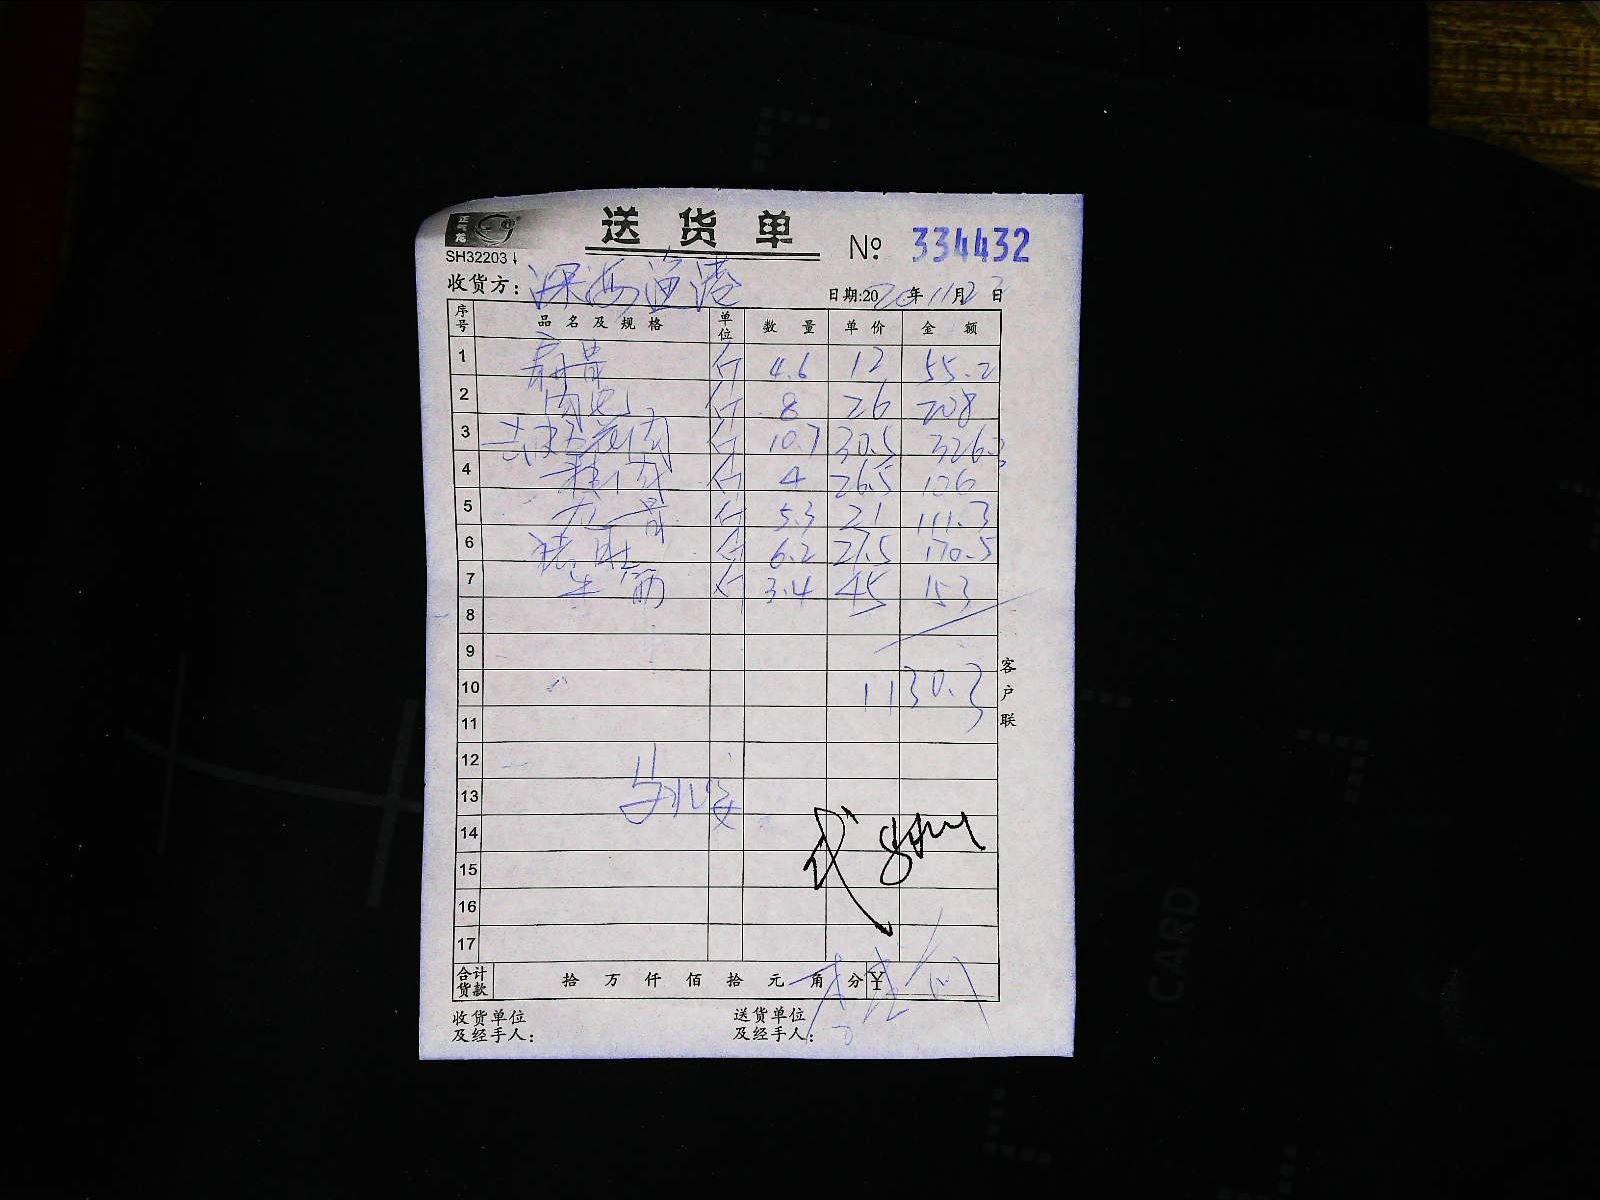 送货单
№ 334432
SH32203
收货方: 深海渔港
日期:2020年11月2日
序号 品名及规格 单位 数量 单价 金额
1 斤 4.6 12 55.2
2 斤 8 26 208
3 五花肉 斤 10.7 30.5 326.3
4 精肉 斤 4 26.5 106
5 龙骨 斤 5.3 21 111.3
6 猪肚 斤 6.2 27.5 170.5
7 牛筋 斤 3.4 45 153
8
9
10 1130.3
11
12
13
14
15
16
17
客户联
合计货款 拾 万 仟 佰 拾 元 角 分 ¥
收货单位及经手人:
送货单位及经手人: